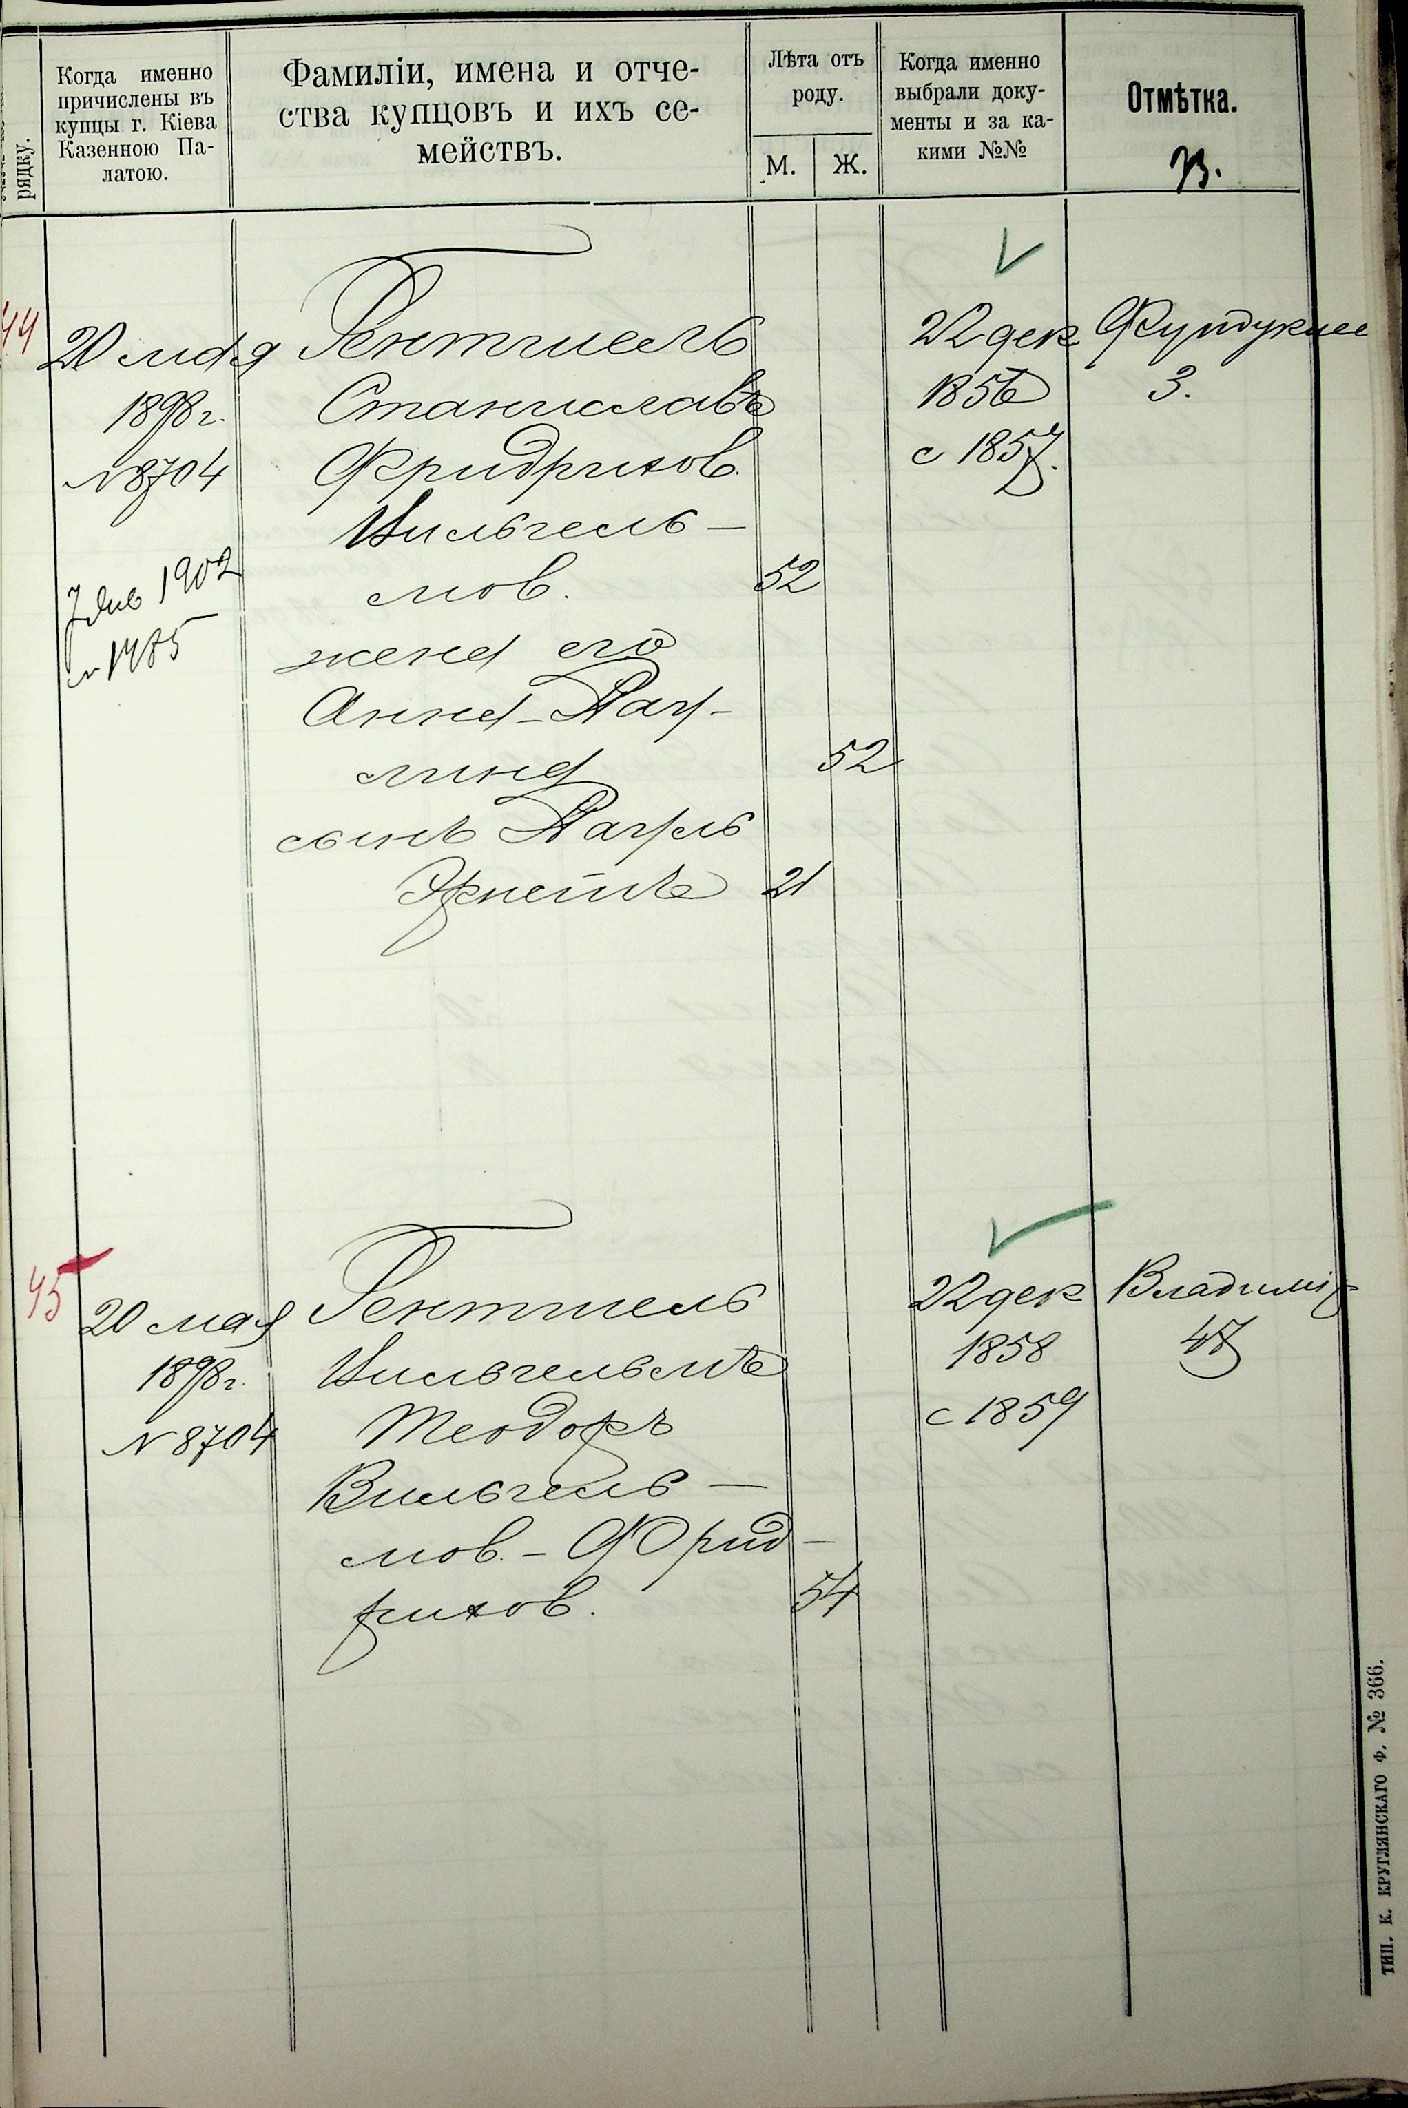 рядку.
Когда именно
причислены въ
купцы г. Кіева
Казенною Па-
латою.
Фамиліи, имена и отче-
ства купцовъ и ихъ се-
мействъ.
Лѣта отъ
роду.
М.
Ж.
Когда именно
выбрали доку-
менты и за ка-
кими №№
Отмѣтка.
44
20 мая
1898 г.
N 8704
7 Янв 1902
N 1485
Гентшель
Станиславъ
Фридрихов.
Вильгель-
мов. 52
жена его
Анна-Пау-
лина 52
сынъ Пауль
Эрнстъ 21
22 дек
1856
с 1857.
Фундуклее
3.
45
20 мая
1898 г.
N 8704
Гентшель
Вильгельмъ
Теодоръ
Вильгель-
мов.-Фрид-
рихов. 54
22 дек
1858
с 1859
Владимір
47
ТИП. К. КРУГЛЯНСКАГО Ф. № 366.